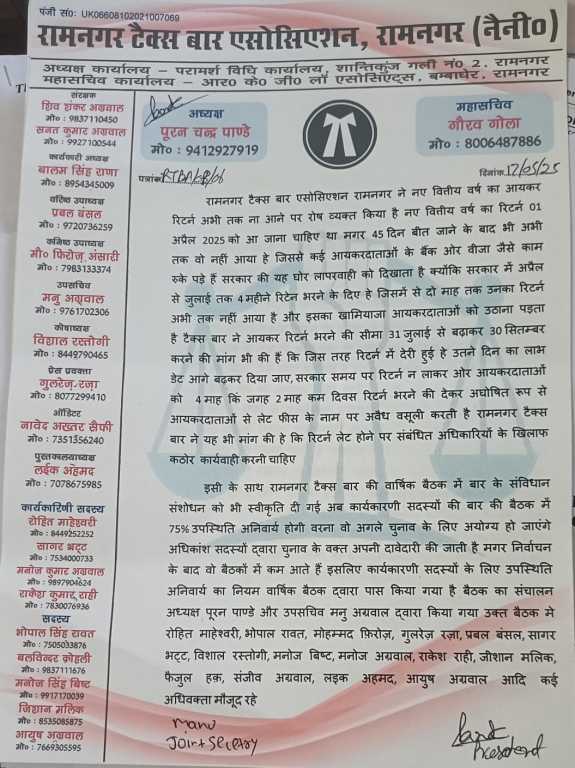 पंजी सं०: UK06608102021007069
रामनगर टैक्स बार एसोसिएशन, रामनगर (नैनी०)
अध्यक्ष कार्यालय – परामर्श विधि कार्यालय, शान्तिकुंज गली नं० 2, रामनगर
महासचिव कार्यालय – आर० के० जी० लॉ एसोसिएट्स, बम्बाघेर, रामनगर
संरक्षक
शिव शंकर अग्रवाल
मो० : 9837110450
सनत कुमार अग्रवाल
मो० : 9927100544
कार्यकारी अध्यक्ष
बालम सिंह राणा
मो० : 8954345009
वरिष्ठ उपाध्यक्ष
प्रबल बंसल
मो० : 9720736259
कनिष्ठ उपाध्यक्ष
मौ० फिरोज़ अंसारी
मो० : 7983133374
उपसचिव
मनु अग्रवाल
मो० : 9761702306
कोषाध्यक्ष
विशाल रस्तोगी
मो० : 8449790465
प्रेस प्रवक्ता
गुलरेज़ रज़ा
मो० : 8077299410
ऑडिटर
नावेद अख्तर सैफी
मो० : 7351356240
पुस्तकालयाध्यक्ष
लईक अहमद
मो० : 7078675985
कार्यकारिणी सदस्य
रोहित माहेश्वरी
मो० : 8449252252
सागर भट्ट
मो० : 7534000733
मनोज कुमार अग्रवाल
मो० : 9897904624
राकेश कुमार राही
मो० : 7830076936
सदस्य
भोपाल सिंह रावत
मो० : 7505033876
बलविन्दर कोहली
मो० : 9837111676
मनोज सिंह बिष्ट
मो० : 9917170039
जिशान मलिक
मो० : 8535085875
आयुष अग्रवाल
मो० : 7669305595
अध्यक्ष
पूरन चन्द्र पाण्डे
मो० : 9412927919
महासचिव
गौरव गोला
मो० : 8006487886
पत्रांक RTBA/GB/06
दिनांक 17/05/25
रामनगर टैक्स बार एसोसिएशन रामनगर ने नए वित्तीय वर्ष का आयकर
रिटर्न अभी तक ना आने पर रोष व्यक्त किया है नए वित्तीय वर्ष का रिटर्न 01
अप्रैल 2025 को आ जाना चाहिए था मगर 45 दिन बीत जाने के बाद भी अभी
तक वो नहीं आया हे जिससे कई आयकरदाताओं के बैंक ओर वीजा जैसे काम
रुके पड़े हैं सरकार की यह घोर लापरवाही को दिखाता है क्योंकि सरकार में अप्रैल
से जुलाई तक 4 महीने रिटेन भरने के दिए हे जिसमें से दो माह तक उनका रिटर्न
अभी तक नहीं आया है और इसका खामियाजा आयकरदाताओं को उठाना पड़ता
है टैक्स बार ने आयकर रिटर्न भरने की सीमा 31 जुलाई से बढ़ाकर 30 सितम्बर
करने की मांग भी की हैं कि जिस तरह रिटर्न में देरी हुई हे उतने दिन का लाभ
डेट आगे बढ़कर दिया जाए, सरकार समय पर रिटर्न न लाकर ओर आयकरदाताओं
को 4 माह कि जगह 2 माह कम दिवस रिटर्न भरने की देकर अघोषित रूप से
आयकरदाताओ से लेट फीस के नाम पर अवैध वसूली करती है रामनगर टैक्स
बार ने यह भी मांग की हे कि रिटर्न लेट होने पर संबंधित अधिकारियों के खिलाफ
कठोर कार्यवाही करनी चाहिए
इसी के साथ रामनगर टैक्स बार की वार्षिक बैठक में बार के संविधान
संशोधन को भी स्वीकृति दी गई अब कार्यकारणी सदस्यों की बार की बैठक में
75% उपस्थिति अनिवार्य होगी वरना वो अगले चुनाव के लिए अयोग्य हो जाएंगे
अधिकांश सदस्यों द्वारा चुनाव के वक्त अपनी दावेदारी की जाती है मगर निर्वाचन
के बाद वो बैठकों में कम आते हैं इसलिए कार्यकारणी सदस्यों के लिए उपस्थिति
अनिवार्य का नियम वार्षिक बैठक द्वारा पास किया गया है बैठक का संचालन
अध्यक्ष पूरन पाण्डे और उपसचिव मनु अग्रवाल द्वारा किया गया उक्त बैठक मे
रोहित माहेश्वरी, भोपाल रावत, मोहम्मद फ़िरोज़, गुलरेज़ रज़ा, प्रबल बंसल, सागर
भट्ट, विशाल रस्तोगी, मनोज बिष्ट, मनोज अग्रवाल, राकेश राही, जीशान मलिक,
फैजुल हक़, संजीव अग्रवाल, लइक अहमद, आयुष अग्रवाल आदि कई
अधिवक्ता मौजूद रहे
manu
Joint Secretary
President